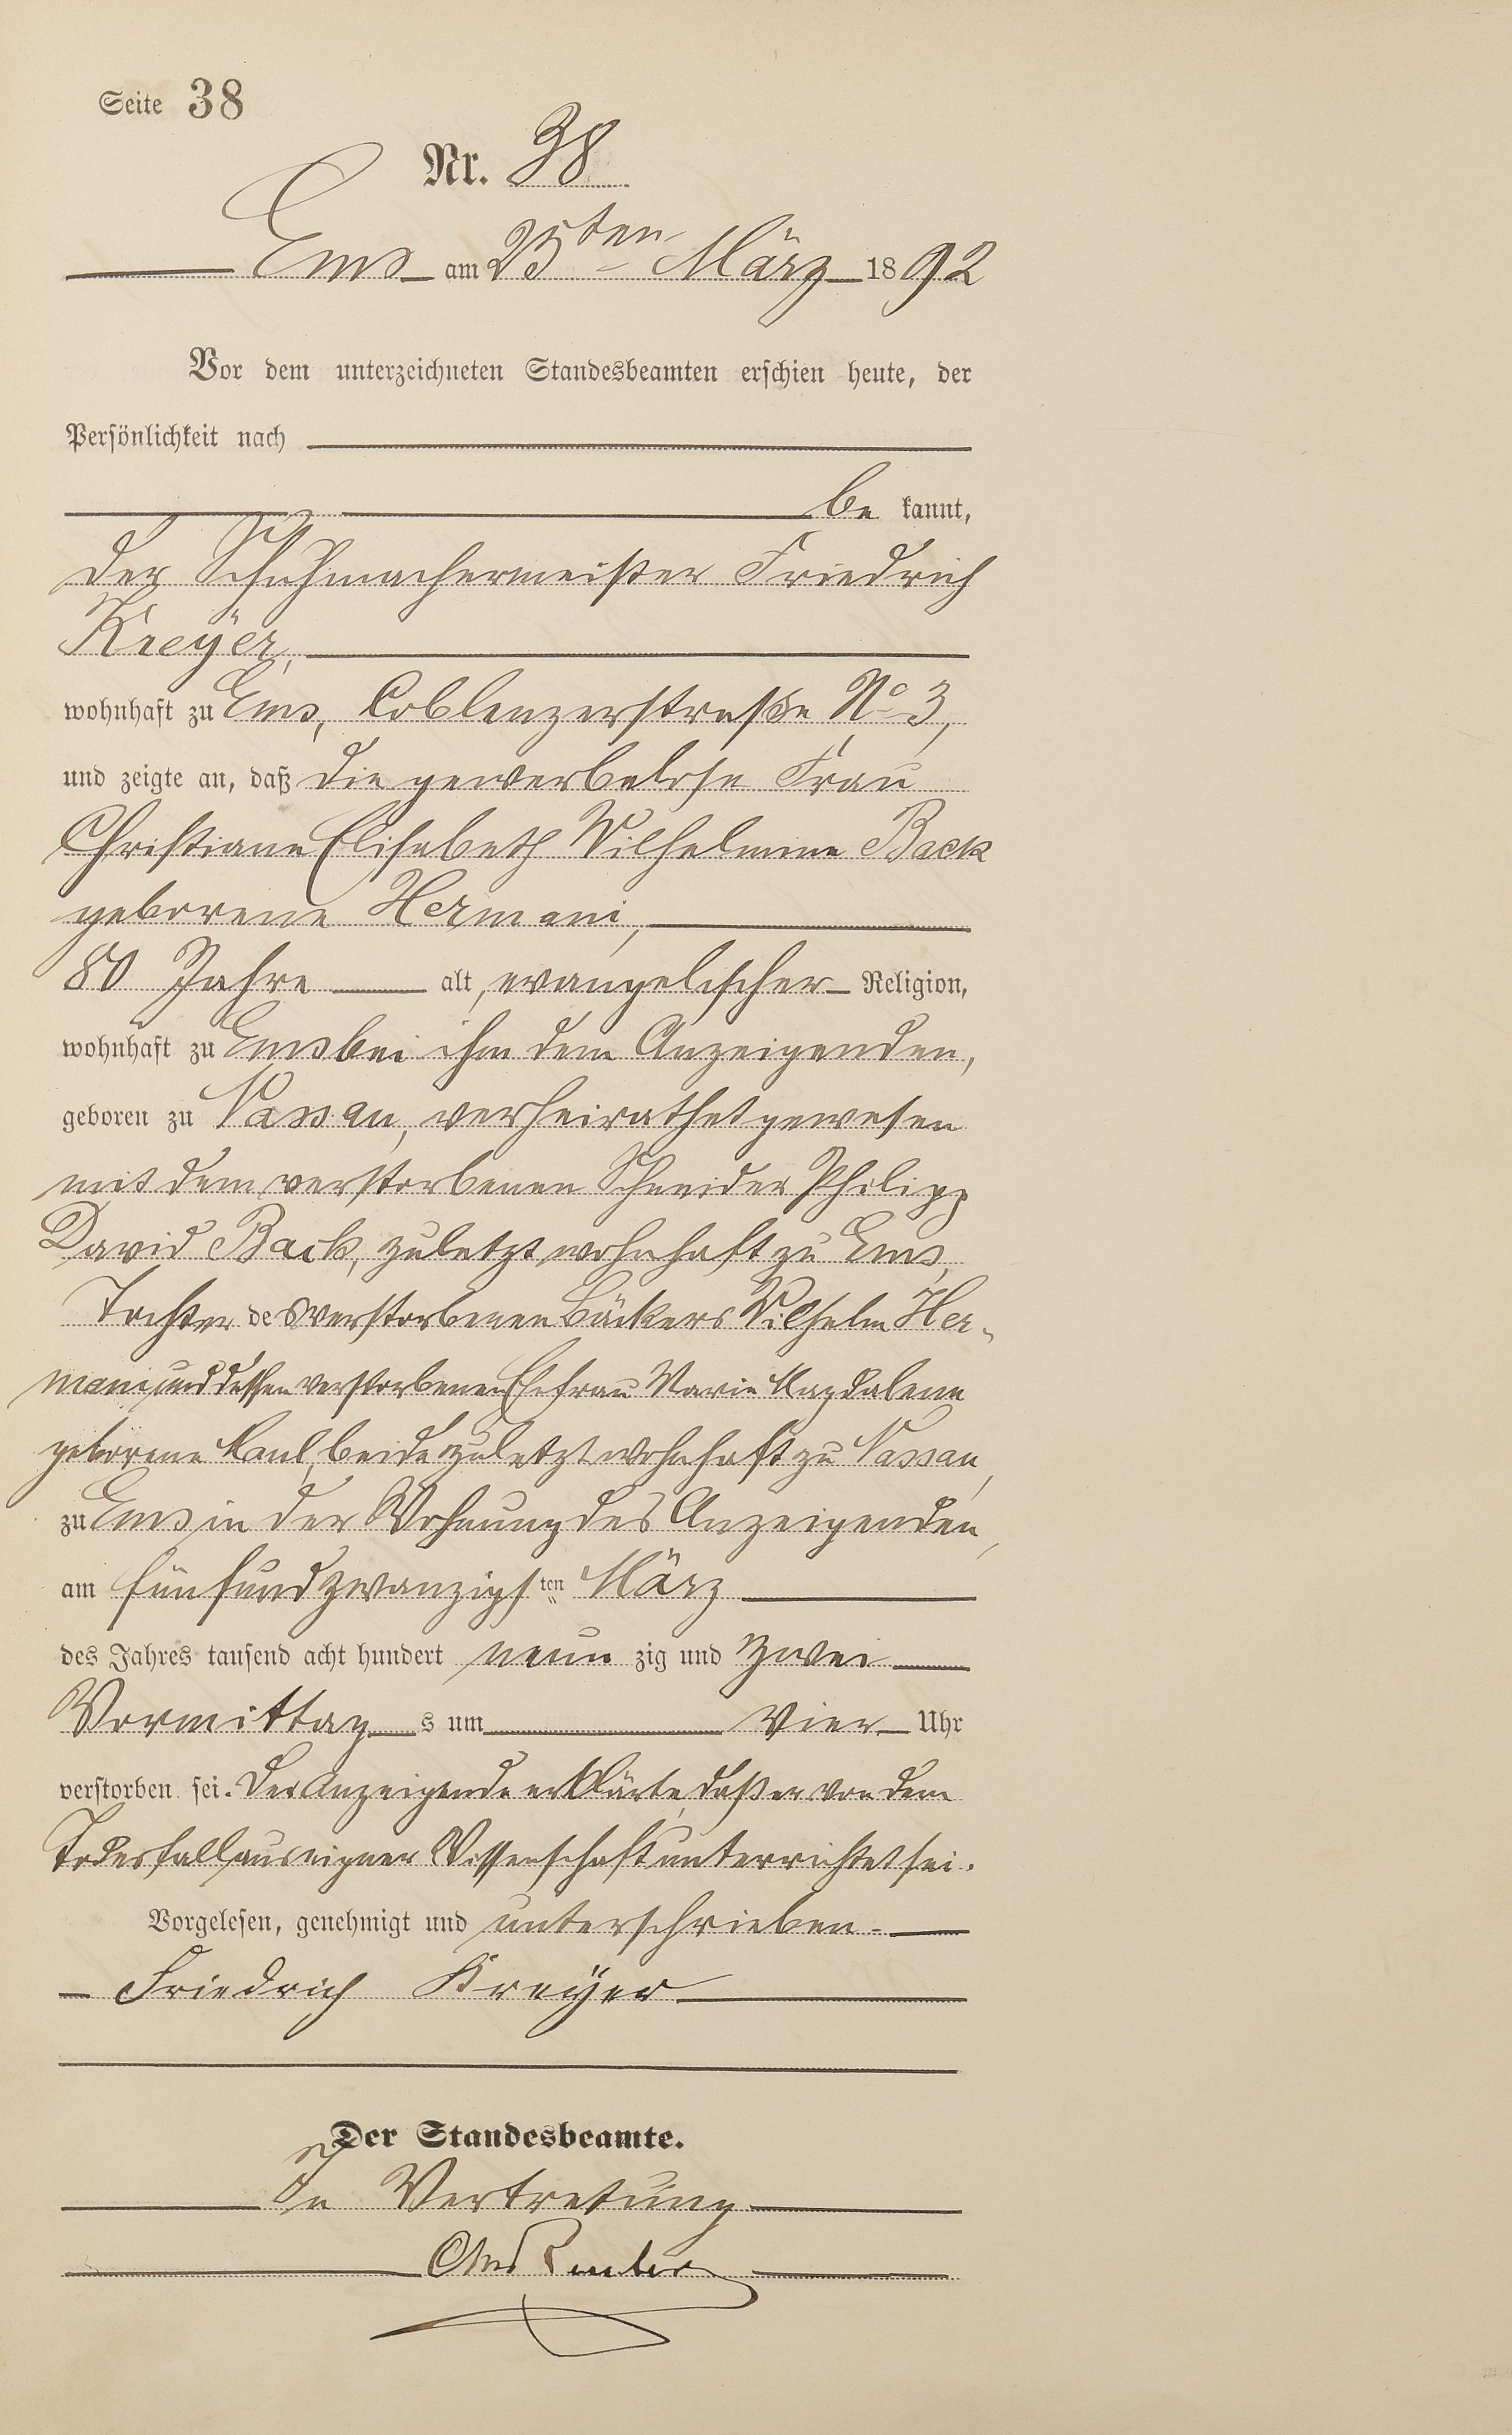 Seite 38
Nr. 38
Ems am 25ten März 1892
Vor dem unterzeichneten Standesbeamten erschien heute, der
Persönlichkeit nach
be kannt,
der Schuhmachermeister Friedrich
Kreyer,
wohnhaft zu Ems, Coblenzerstraße No 3,
und zeigte an, daß die gewerbelose Frau
Christiane Elisabeth Wilhelmine Back
geborene Hermani,
80 Jahre alt, evangelischer Religion,
wohnhaft zu Ems bei ihm dem Anzeigenden,
geboren zu Nassau, verheirathet gewesen
mit dem verstorbenen Schneider Philipp
David Back, zuletzt wohnhaft zu Ems,
Tochter des verstorbenen Bäckers Wilhelm Her-
mani und dessen verstorbenen Ehefrau Marie Magdalene
geborene Paul, beide zuletzt wohnhaft zu Nassau,
zu Ems in der Wohnung des Anzeigenden,
am fünfundzwanzigsten März
des Jahres tausend acht hundert neun zig und zwei
Vormittag s um vier Uhr
verstorben sei. Der Anzeigende erklärte, daß er von dem
Todesfall aus eigner Wissenschaft unterrichtet sei.
Vorgelesen, genehmigt und unterschrieben.
Friedrich Kreyer
Der Standesbeamte.
In Vertretung